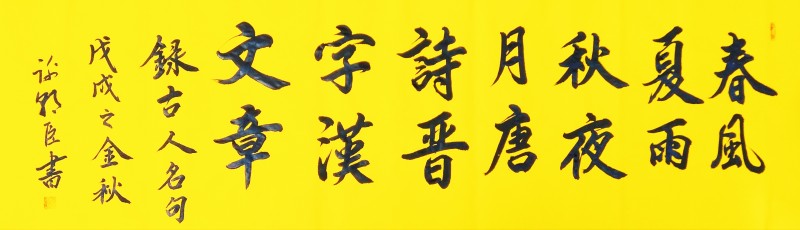 春風
夏雨
秋夜
月唐
詩晋
字漢
文章
録古人名句
戊戌之金秋
臣書